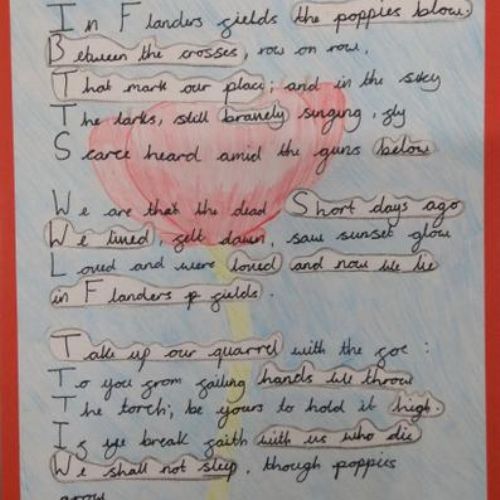 In Flanders fields the poppies blow,
Between the crosses, row on row,
That mark our place; and in the sky
The larks, still bravely singing, fly
Scarce heard amid the guns below
We are that the dead Short days ago
We lived, felt dawn, saw sunset glow
Loved and were loved and now we lie
in Flanders p fields.
Take up our quarrel with the foe:
To you from failing hands we throw
The torch; be yours to hold it high.
If ye break faith with us who die
We shall not sleep, though poppies
grow